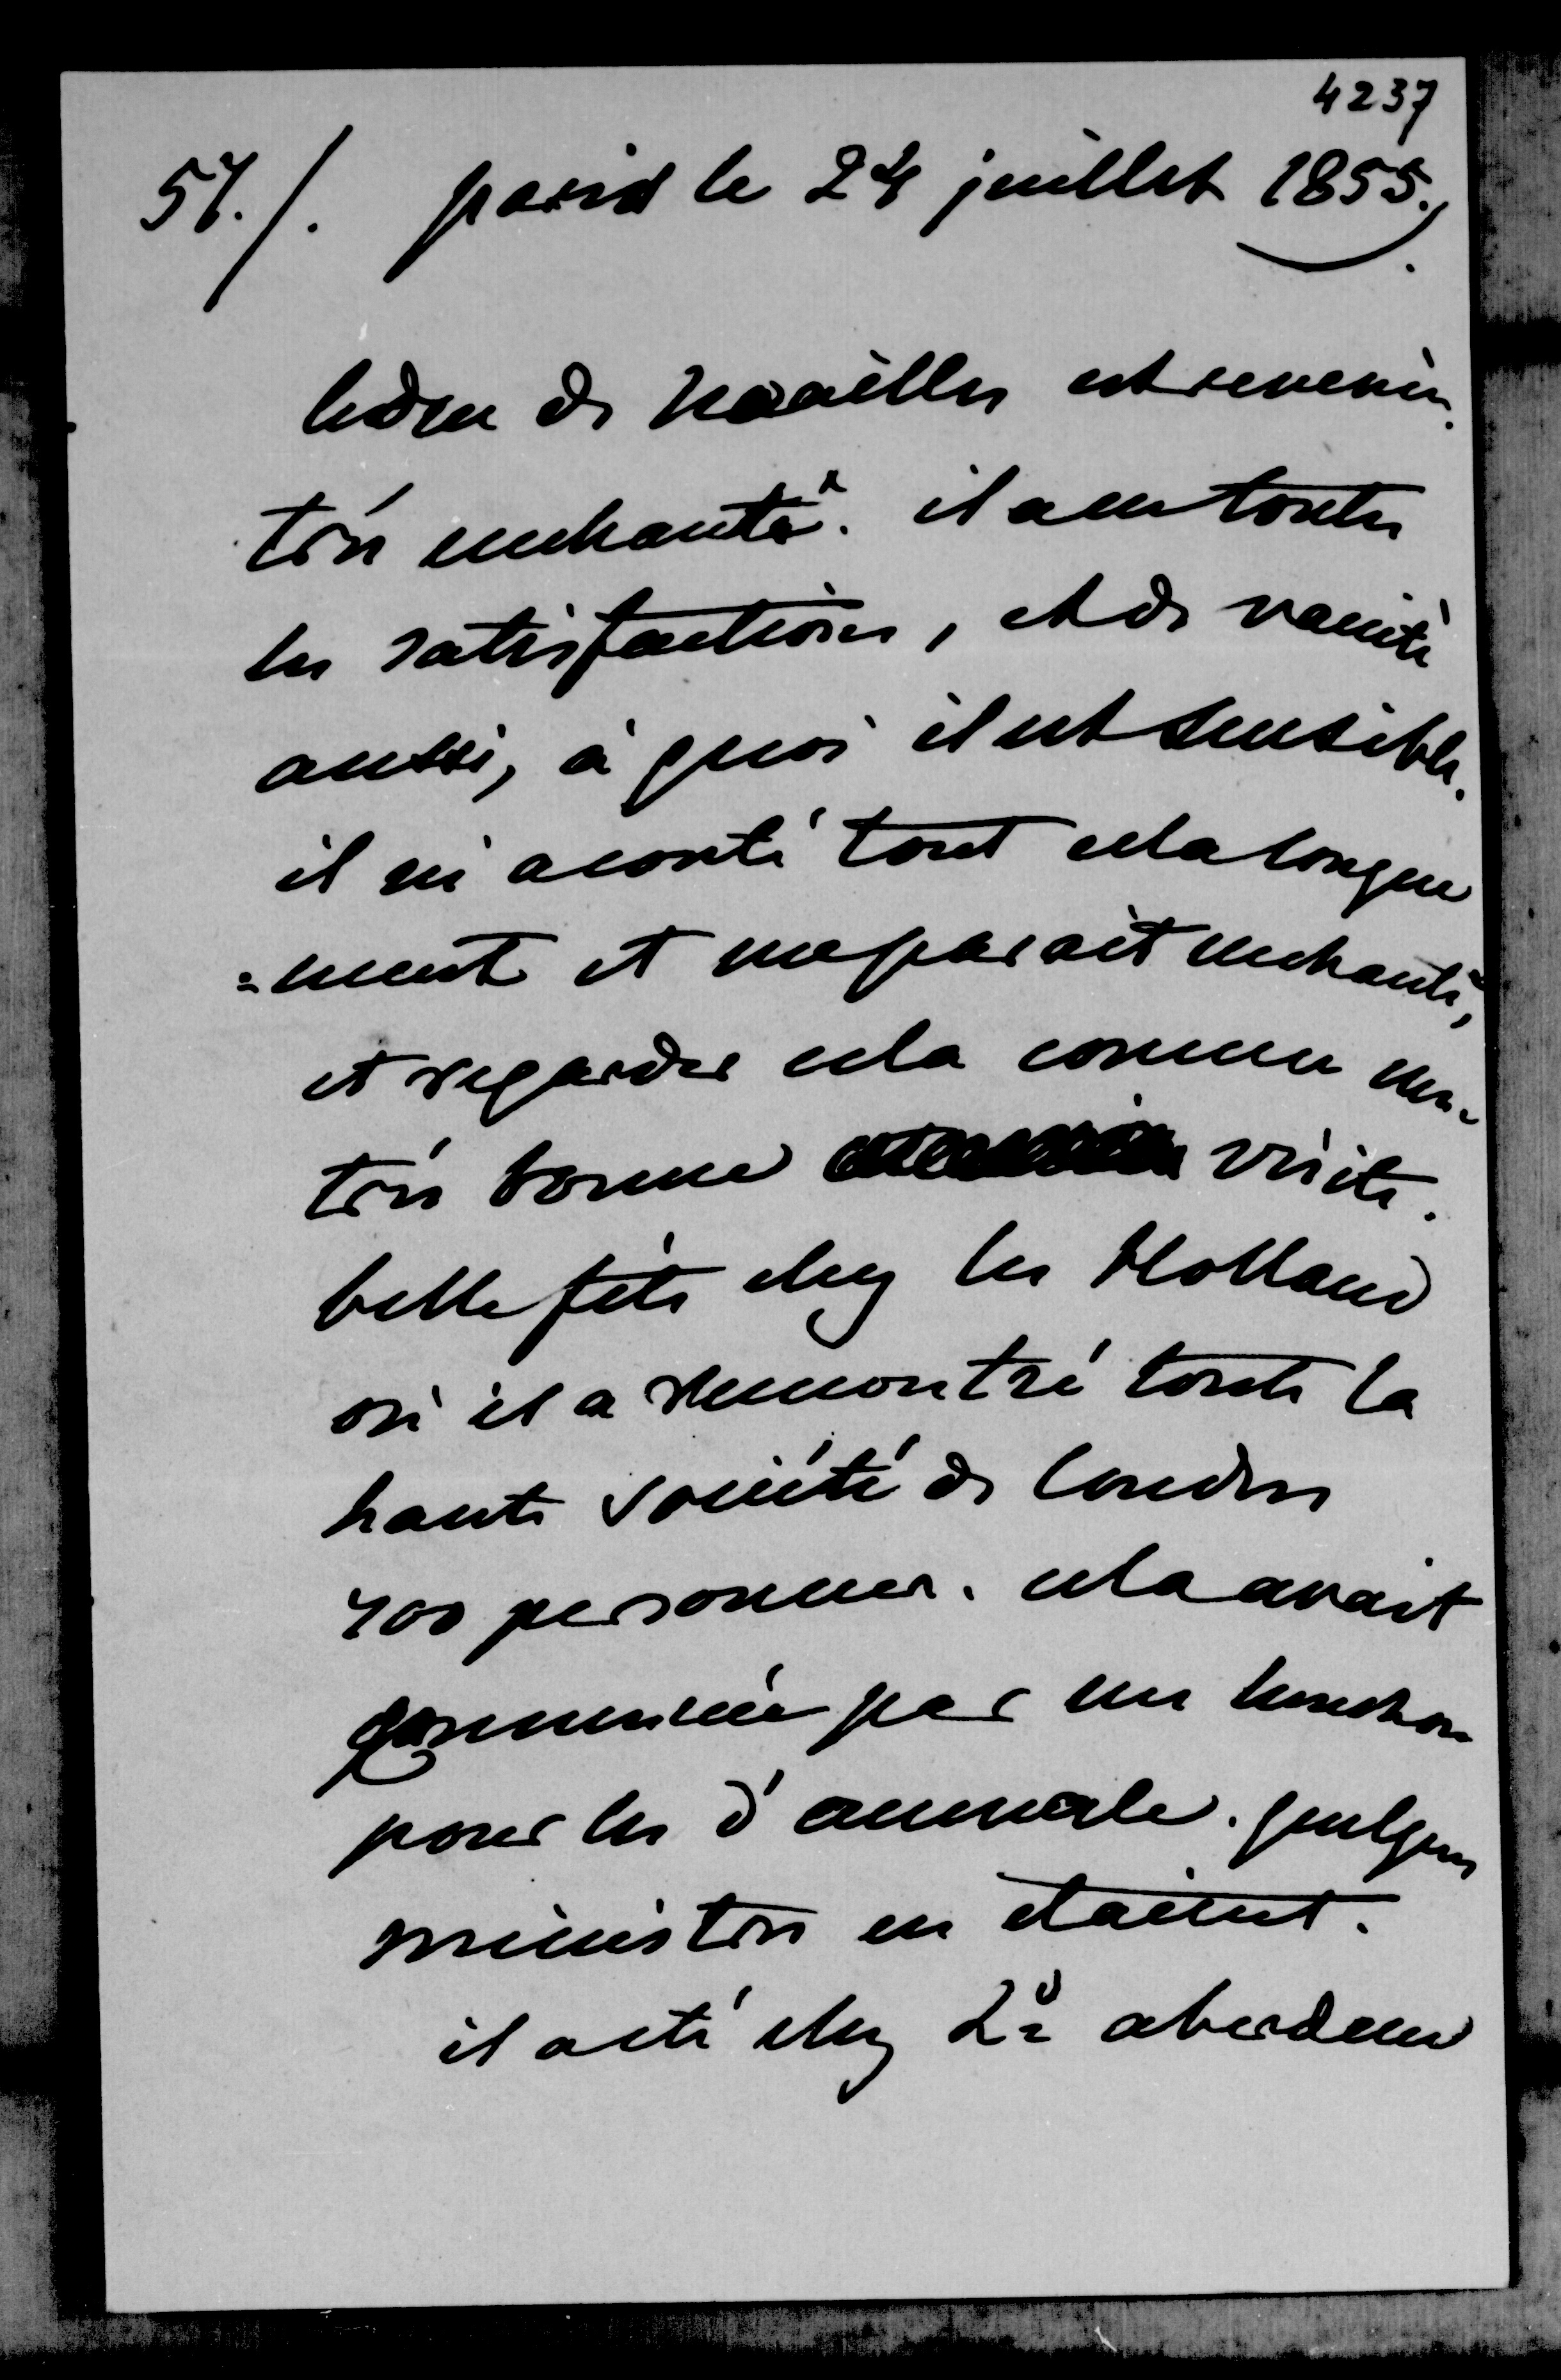 4237
57./. paris le 24 juillet 1855.
le duc de Noailles est revenu
très enchanté. il a eu toutes
les satisfactions, et de vanité
aussi, à quoi il est sensible.
il m'a conté tout cela longue
=ment et me parait enchanté,
et regarder cela comme une
très bonne visite.
belle fête chez les Holland
où il a rencontré toute la
haute société de Londres
700 personnes. cela avait
commencé par un luncheon
pour les d'aumale. quelques
ministres en étaient.
il a été chez Ld aberdeen